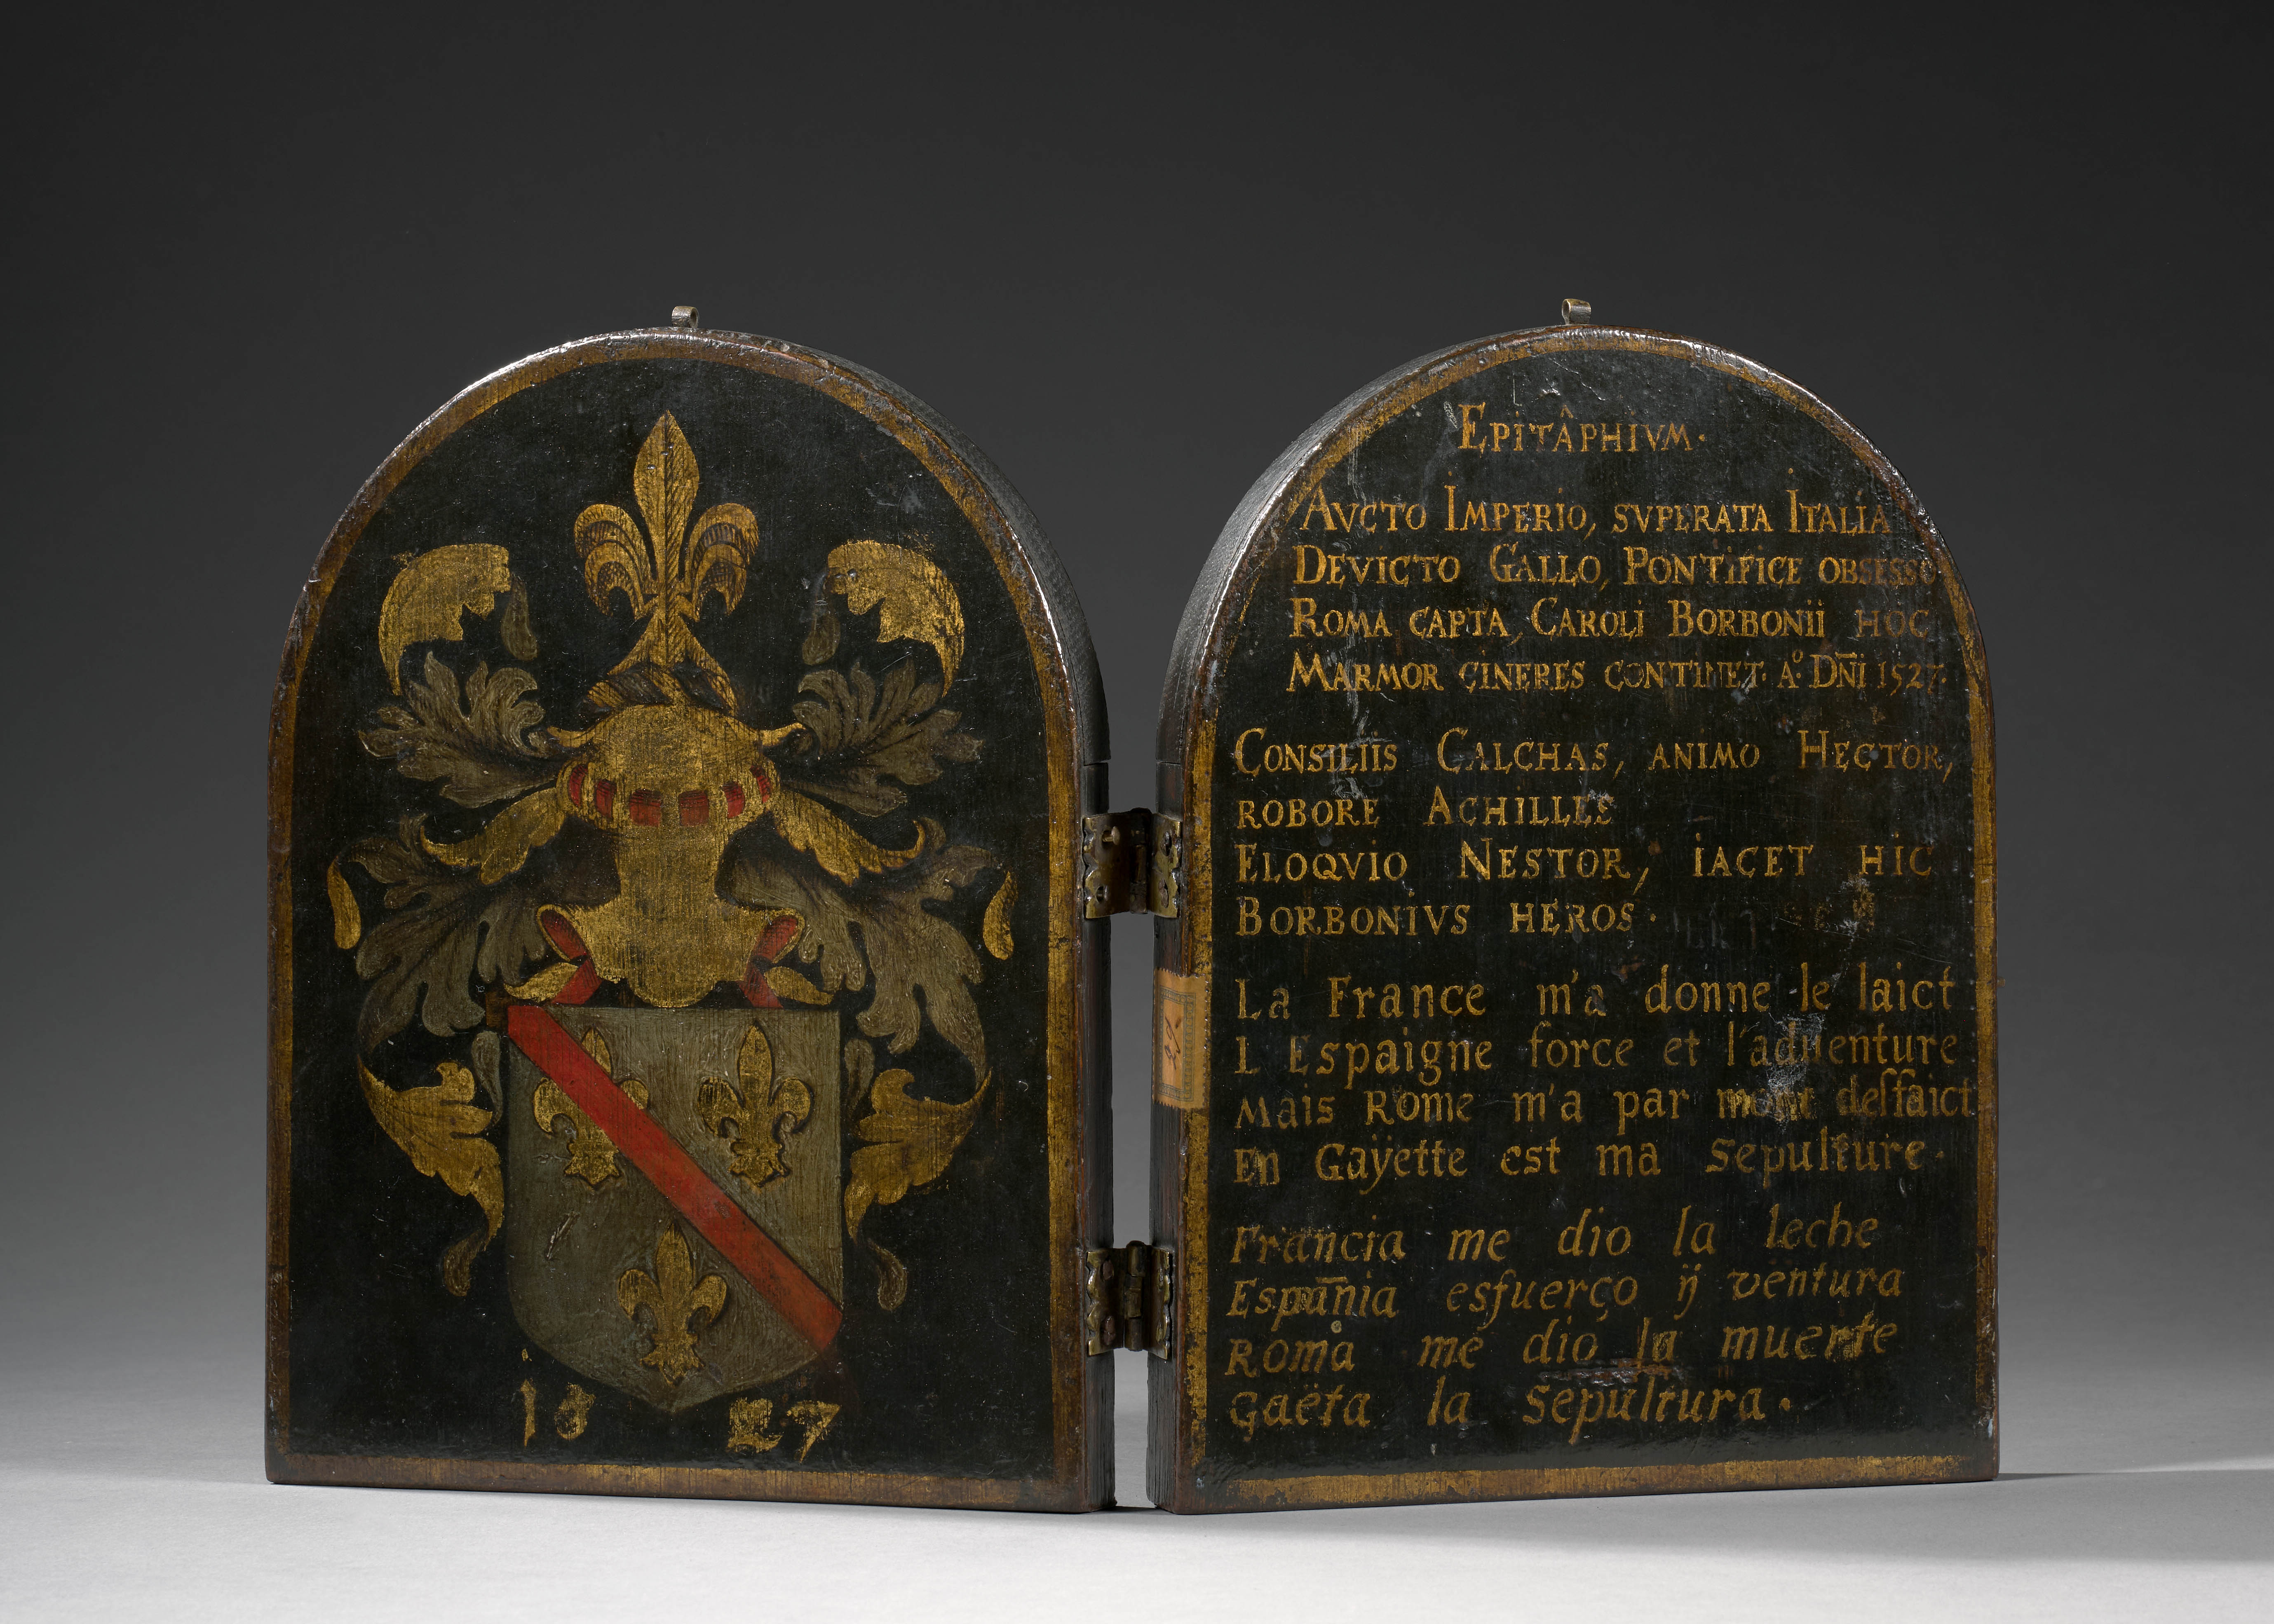 18 27
EPITÂPHIVM.
AVCTO IMPERIO, SVPERATA ITALIA
DEVICTO GALLO, PONTIFICE OBSESSO
ROMA CAPTA, CAROLI BORBONII HOC
MARMOR CINERES CONTINET. Aº. DN̄I 1527.
CONSILIIS CALCHAS, ANIMO HECTOR,
ROBORE ACHILLES
ELOQVIO NESTOR, IACET HIC
BORBONIVS HEROS.
La France m'a donne le laict
L Espaigne force et l'aduenture
Mais Rome m'a par mort desfaict
En Gaÿette est ma Sepulture.
Francia me dio la leche
Espan̄ia esfuerço ÿ ventura
Roma me dio la muerte
Gaëta la Sepultura.